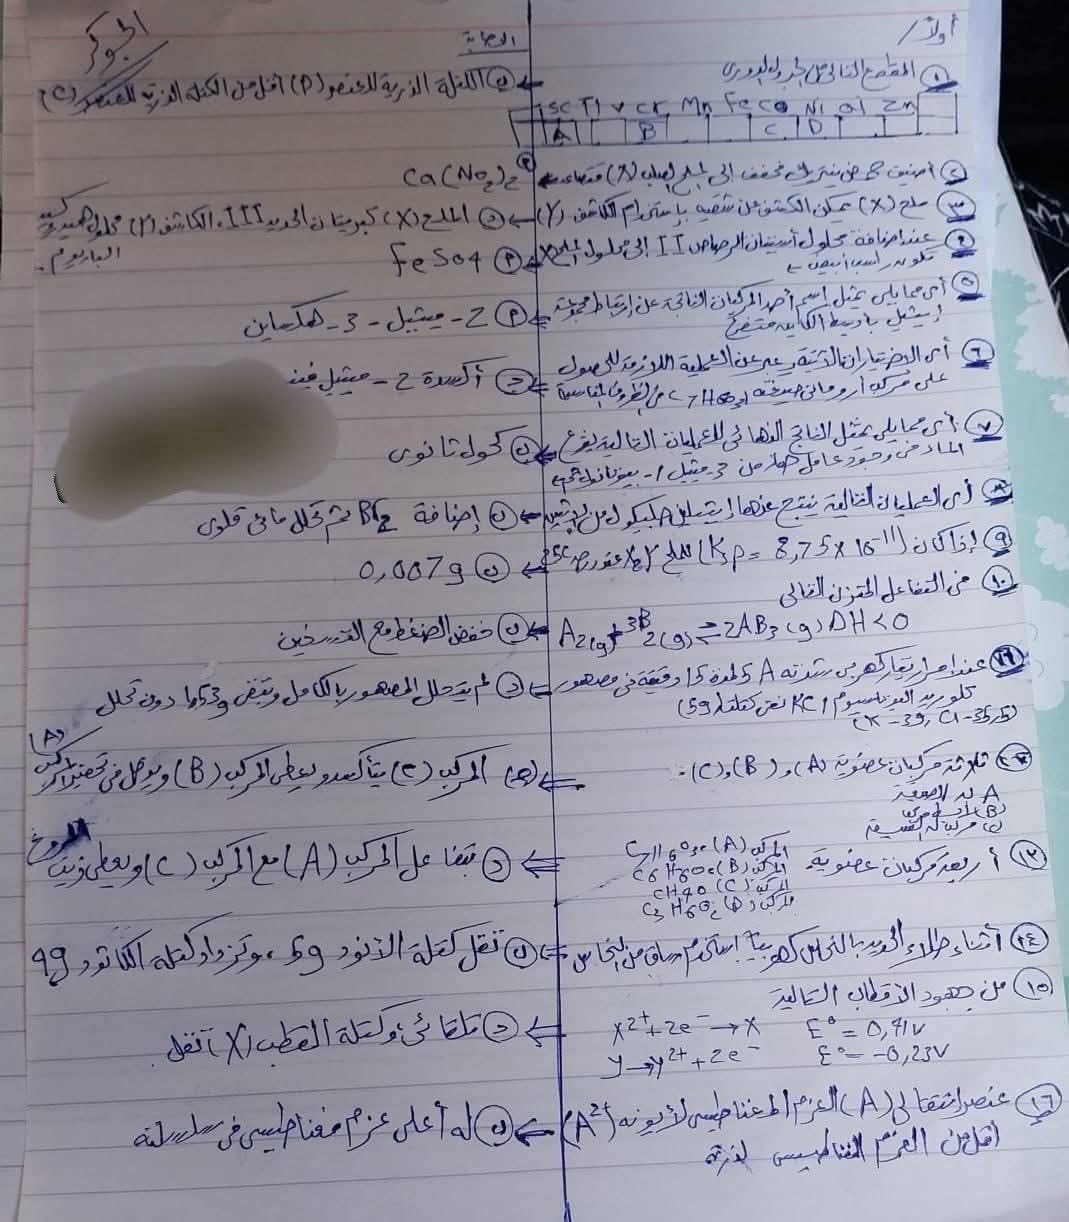 أولاً/
الإجابة
① المقطع التالى من الجدول الدورى
د الكتلة الذرية للعنصر (D) أقل من الكتلة الذرية للعنصر (C)
Sc Ti V Cr Mn Fe Co Ni Zn
A B C D
② أضيف حمض نيتريك مخفف الى الملح الصلب (X)
Ca(NO2)2
③ ملح (X) يمكن الكشف عن شقيه بإستخدام الكاشف (Y)
الملح (X) كبريتات الحديد III، الكاشف (Y) محلول هيدروكسيد
الباريوم.
④ عند اضافة محلول أسيتات الرصاص II الى محلول الملح X
تكون راسب أبيض
FeSO4
⑤ أى مما يلى يمثل إسم أحد المركبات الناتجة عن إرتباط مجموعة
إيثيل بأوسط الكاين متفرع
2 - ميثيل - 3 - هكساين
⑥ أى الاختيارات الآتية يعبر عن العملية اللازمة للحصول
على مركب أروماتى صيغته من الظروف المناسبة
أكسدة 2 - ميثيل
⑦ أى مما يلى يمثل الناتج النهائى للعمليات التالية
الماء فى وجود عامل حفاز من 3 - ميثيل 1 - بيوتانول
كحول ثانوى
⑧ أى العمليات التالية ينتج عنها إيثيلين جليكول من
إضافة Br2 ثم تحلل مائى قلوى
⑨ إذا كان (Ksp = 8,75 x 10-11) لملح
0,007g
⑩ من التفاعل المتزن التالى
A2(g) + 3B2(g) ⇌ 2AB3(g) ΔH<0
خفض الضغط مع التسخين
⑪ عند امرار تيار كهربى شدته 5 A لمدة 15 دقيقة فى مصهور
كلوريد البوتاسيوم KCl نص كتلته (5g
(K-39, Cl-35,5)
لم يتحلل المصهور بالكامل وتبقى 1,53g دون تحلل
⑫ ثلاثة مركبات عضوية (A) و (B) و (C) :-
A له الصيغة
المركب (C) يتأكسد ويعطى المركب (B) ويدخل فى تحضير المركب
(A)
⑬ أربعة مركبات عضوية
المركب (A) C7H6O3
المركب (B) C6H6O
المركب (C) CH4O
المركب (D) C3H6O2
تفاعل المركب (A) مع المركب (C) ويعطى زيت
المروخ
⑭ أثناء طلاء الحديد بالنحاس كهربياً استخدم ساق من النحاس
تقل كتلة الأنود، وتزداد كتلة الكاثود
⑮ من جهود الأقطاب التالية
X2+ + 2e- → X E° = 0,41V
y → y2+ + 2e- E° = -0,23V
تلقائى، وكتلة القطب (X) تقل
⑯ عنصر انتقالى (A) العزم المغناطيسى لأيونه (A2+)
أقل من العزم المغناطيسى لذرته
له أعلى عزم مغناطيسى فى سلسلته